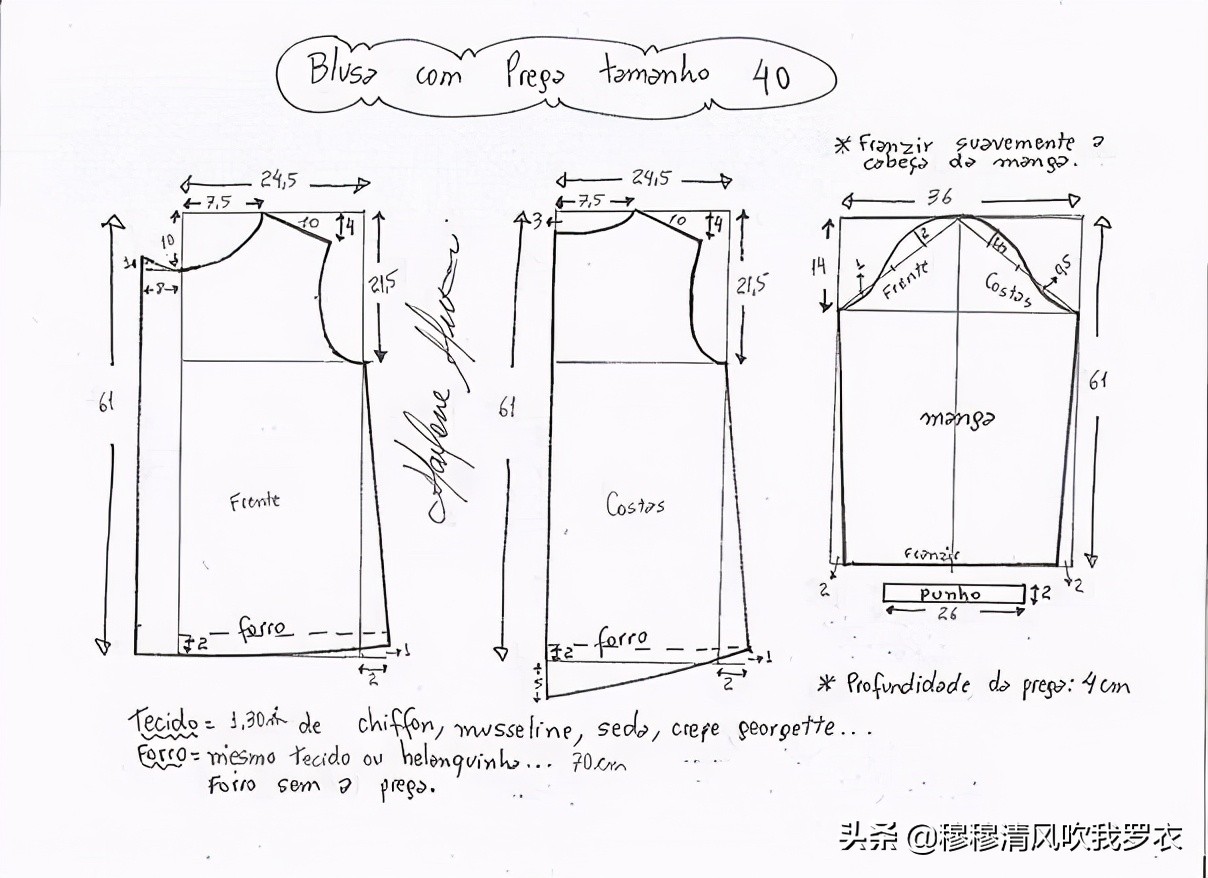 Blusa com Prega tamanho 40
* Franzir suavemente a
cabeça da manga.
24,5
7,5
10
4
10
1
8
21,5
61
Frente
forro
2
1
2
24,5
7,5
3
10
4
21,5
61
Costas
forro
2
5
1
2
36
14
1
2
Frente
Costas
0,5
61
manga
Franzir
2
2
punho
2
26
* Profundidade da prega: 4 cm
Tecido = 1,30m de chiffon, musseline, seda, crepe georgette...
Forro = mesmo tecido ou helanquinha... 70cm
Forro sem a prega.
头条 @穆穆清风吹我罗衣